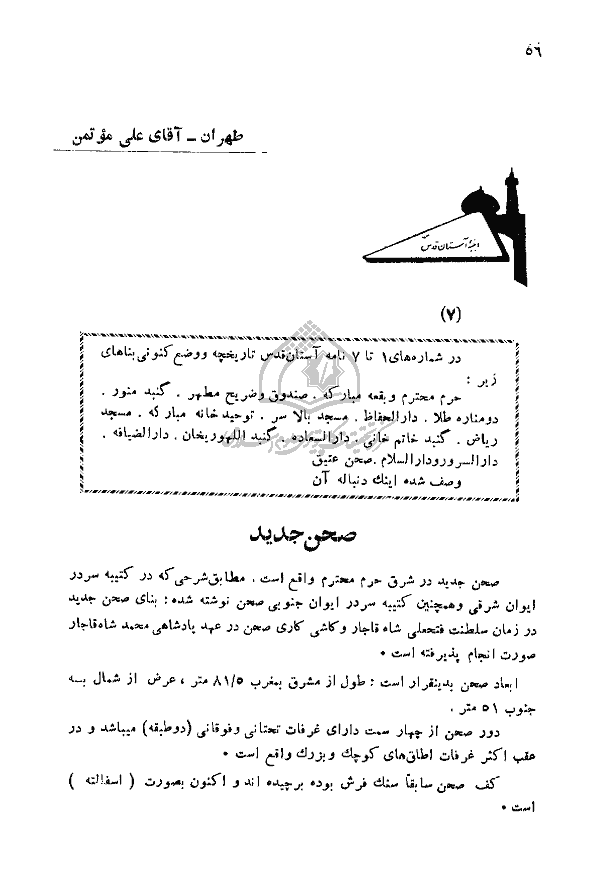 ۵۶
طهران – آقای علی مؤتمن
ابنیهٔ آستان قدس
(۷)
در شماره‌های ۱ تا ۷ نامه آستان‌قدس تاریخچه ووضع کنونی بناهای
زیر :
حرم محترم وبقعه مبارکه . صندوق وضریح مطهر . گنبد منور .
دومناره طلا . دارالحفاظ . مسجد بالا سر . توحیدخانه مبارکه . مسجد
ریاض . گنبد خاتم خانی . دارالسعاده . گنبد اللهوردیخان . دارالضیافه .
دارالسرورودارالسلام .صحن عتیق
وصف شده اینك دنباله آن
صحن جدید
صحن جدید در شرق حرم محترم واقع است . مطابق‌شرحی‌که در کتیبه سردر
ایوان شرقی وهمچنین کتیبه سردر ایوان جنوبی صحن نوشته شده : بنای صحن جدید
در زمان سلطنت فتحعلی شاه قاجار وکاشی کاری صحن در عهد پادشاهی محمد شاه‌قاجار
صورت انجام پذیرفته است •
ابعاد صحن بدینقرار است : طول از مشرق بمغرب ۸۱/۵ متر ، عرض از شمال بـه
جنوب ۵۱ متر .
دور صحن از چهار سمت دارای غرفات تحتانی وفوقانی (دوطبقه) میباشد و در
عقب اکثر غرفات اطاق‌های کوچك وبزرك واقع است •
کف صحن سابقاً سنك فرش بوده برچیده اند و اکنون بصورت ( اسفالته )
است •